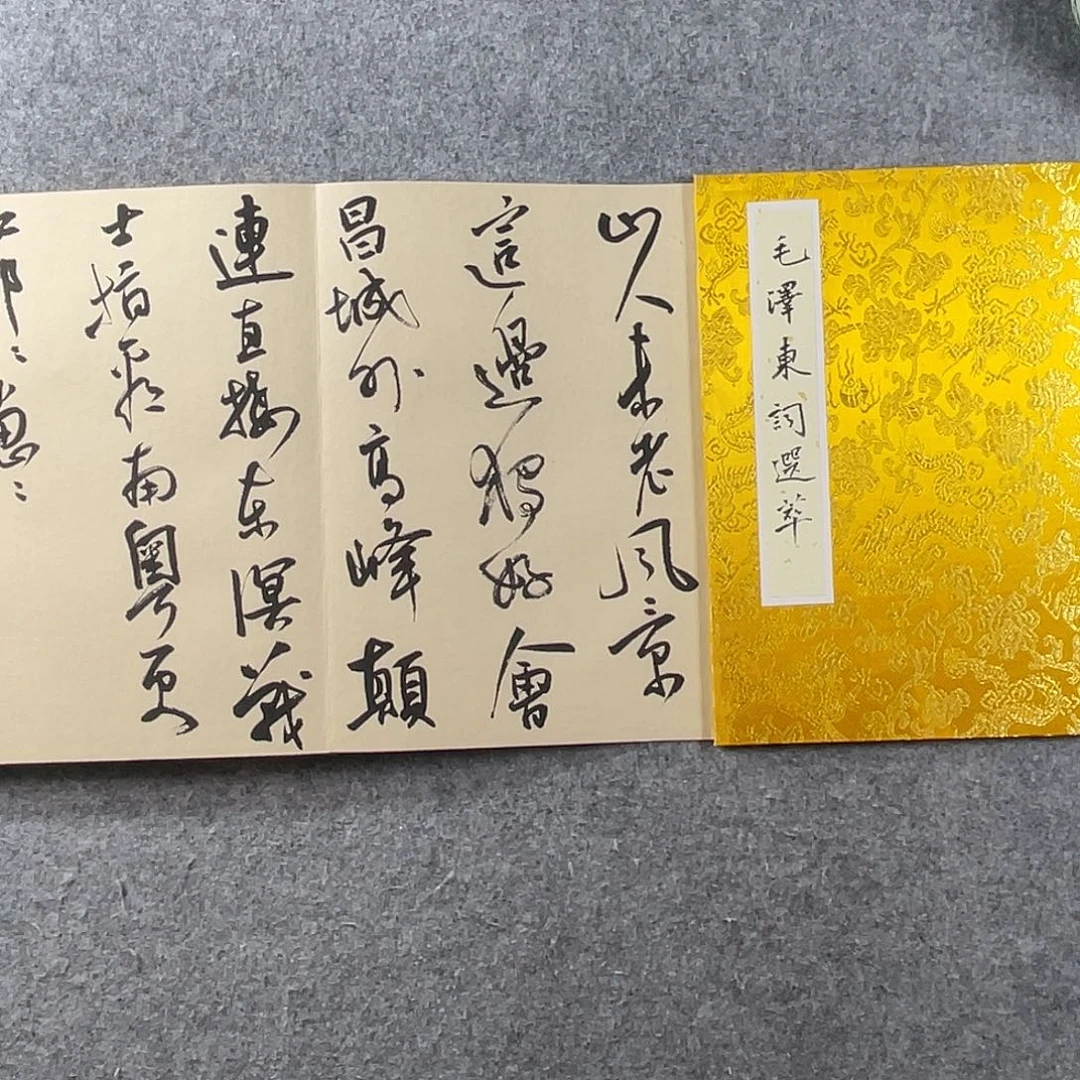 毛澤東詞選萃
山人未老風景
這邊獨好會
昌城外高峰顛
連直接东溟戰
士指看南粤更
郁々葱々